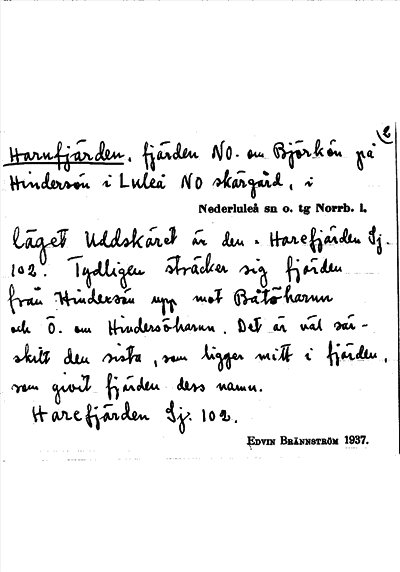 2
Harnfjärden, fjärden NO. om Björkön på
Hindersön i Luleå NO skärgård, i
Nederluleå sn o. tg Norrb. l.
läget Uddskäret är den. Harefjärden Sj.
102. Tydligen sträcker sig fjärden
från Hindersön upp mot Båtöharun
och Ö. om Hindersöharun. Det är väl sär-
skilt den sista, som ligger mitt i fjärden,
som givit fjärden dess namn.
Harefjärden Sj. 102.
EDVIN BRÄNNSTRÖM 1937.